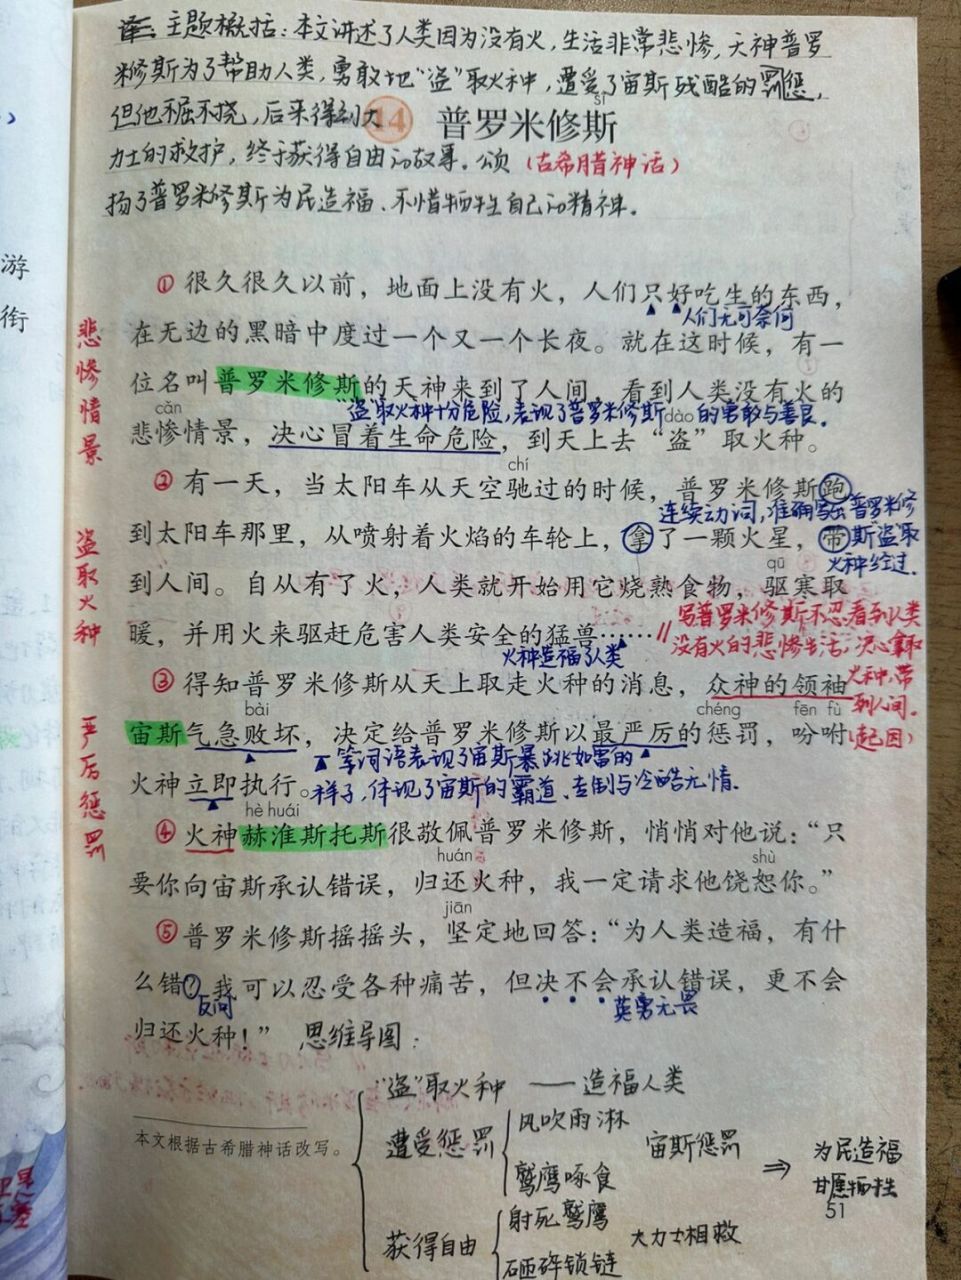 主题概括：本文讲述了人类因为没有火，生活非常悲惨，天神普罗
米修斯为了帮助人类，勇敢地“盗”取火种，遭受了宙斯残酷的罚惩，
但他不屈不挠，后来得到大
力士的救护，终于获得自由的故事。颂
扬了普罗米修斯为民造福、不惜牺牲自己的精神。
sī
14 普罗米修斯
（古希腊神话）
①很久很久以前，地面上没有火，人们只好吃生的东西，
人们无可奈何
在无边的黑暗中度过一个又一个长夜。就在这时候，有一
位名叫普罗米修斯的天神来到了人间，看到人类没有火的
“盗”取火种十分危险，表现了普罗米修斯的勇敢与善良。
cǎn dào
悲惨情景，决心冒着生命危险，到天上去“盗”取火种。
悲惨情景
chí
②有一天，当太阳车从天空驰过的时候，普罗米修斯跑
连续动词，准确写出普罗米修
斯“盗”取
火种经过.
到太阳车那里，从喷射着火焰的车轮上，拿了一颗火星，带
qū
到人间。自从有了火，人类就开始用它烧熟食物，驱寒取
盗取火种
暖，并用火来驱赶危害人类安全的猛兽……
火种造福了人类
写普罗米修斯不忍看到人类
没有火的悲惨生活，决心拿取
火种，带
到人间.
（起因）
③得知普罗米修斯从天上取走火种的消息，众神的领袖
bài chéng fēn fù
宙斯气急败坏，决定给普罗米修斯以最严厉的惩罚，吩咐
等词语表现了宙斯暴跳如雷的
火神立即执行。
样子，体现了宙斯的霸道、专制与冷酷无情.
严厉惩罚
hè huái
④火神赫淮斯托斯很敬佩普罗米修斯，悄悄对他说：“只
huán shù
要你向宙斯承认错误，归还火种，我一定请求他饶恕你。”
jiān
⑤普罗米修斯摇摇头，坚定地回答：“为人类造福，有什
么错？我可以忍受各种痛苦，但决不会承认错误，更不会
反问
英勇无畏
归还火种！”
思维导图：
“盗”取火种 —— 造福人类
遭受惩罚
风吹雨淋
鹫鹰啄食
宙斯惩罚
获得自由
射死鹫鹰
砸碎锁链
大力士相救
⇒ 为民造福
甘愿牺牲
本文根据古希腊神话改写。
51
游
衔